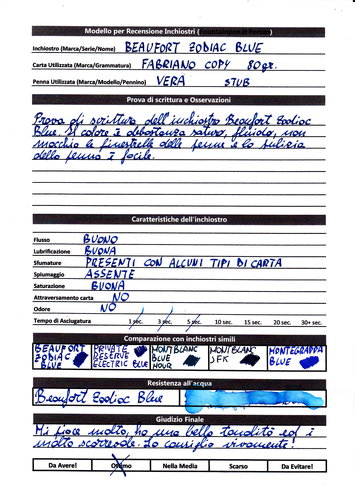 Modello per Recensione Inchiostri (Fountainpen.it Forum)
Inchiostro (Marca/Serie/Nome) BEAUFORT ZODIAC BLUE
Carta Utilizzata (Marca/Grammatura) FABRIANO COPY 80gr.
Penna Utilizzata (Marca/Modello/Pennino) VERA STUB
Prova di scrittura e Osservazioni
Prova di scrittura dell'inchiostro Beaufort Zodiac
Blue. Il colore è abbastanza saturo, fluido, non
macchia le finestrelle delle penne e la pulizia
della penna è facile.
Caratteristiche dell'inchiostro
Flusso BUONO
Lubrificazione BUONA
Sfumature PRESENTI CON ALCUNI TIPI DI CARTA
Spiumaggio ASSENTE
Saturazione BUONA
Attraversamento carta NO
Odore NO
Tempo di Asciugatura 1 sec. 3 sec. 5 sec. 10 sec. 15 sec. 20 sec. 30+ sec.
Comparazione con inchiostri simili
BEAUFORT ZODIAC BLUE PRIVATE RESERVE ELECTRIC BLUE MONTBLANC BLUE HOUR MONTBLANC JFK MONTEGRAPPA BLUE
Resistenza all'acqua
Beaufort Zodiac Blue
Giudizio Finale
Mi piace molto, ha una bella tonalità ed è
molto scorrevole. Lo consiglio vivamente!
Da Avere! Ottimo Nella Media Scarso Da Evitare!